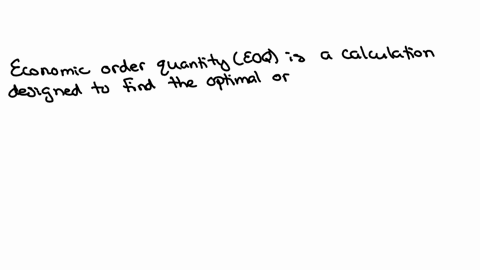 Economic order quantity (EOQ) is a calculation
designed to find the optimal or